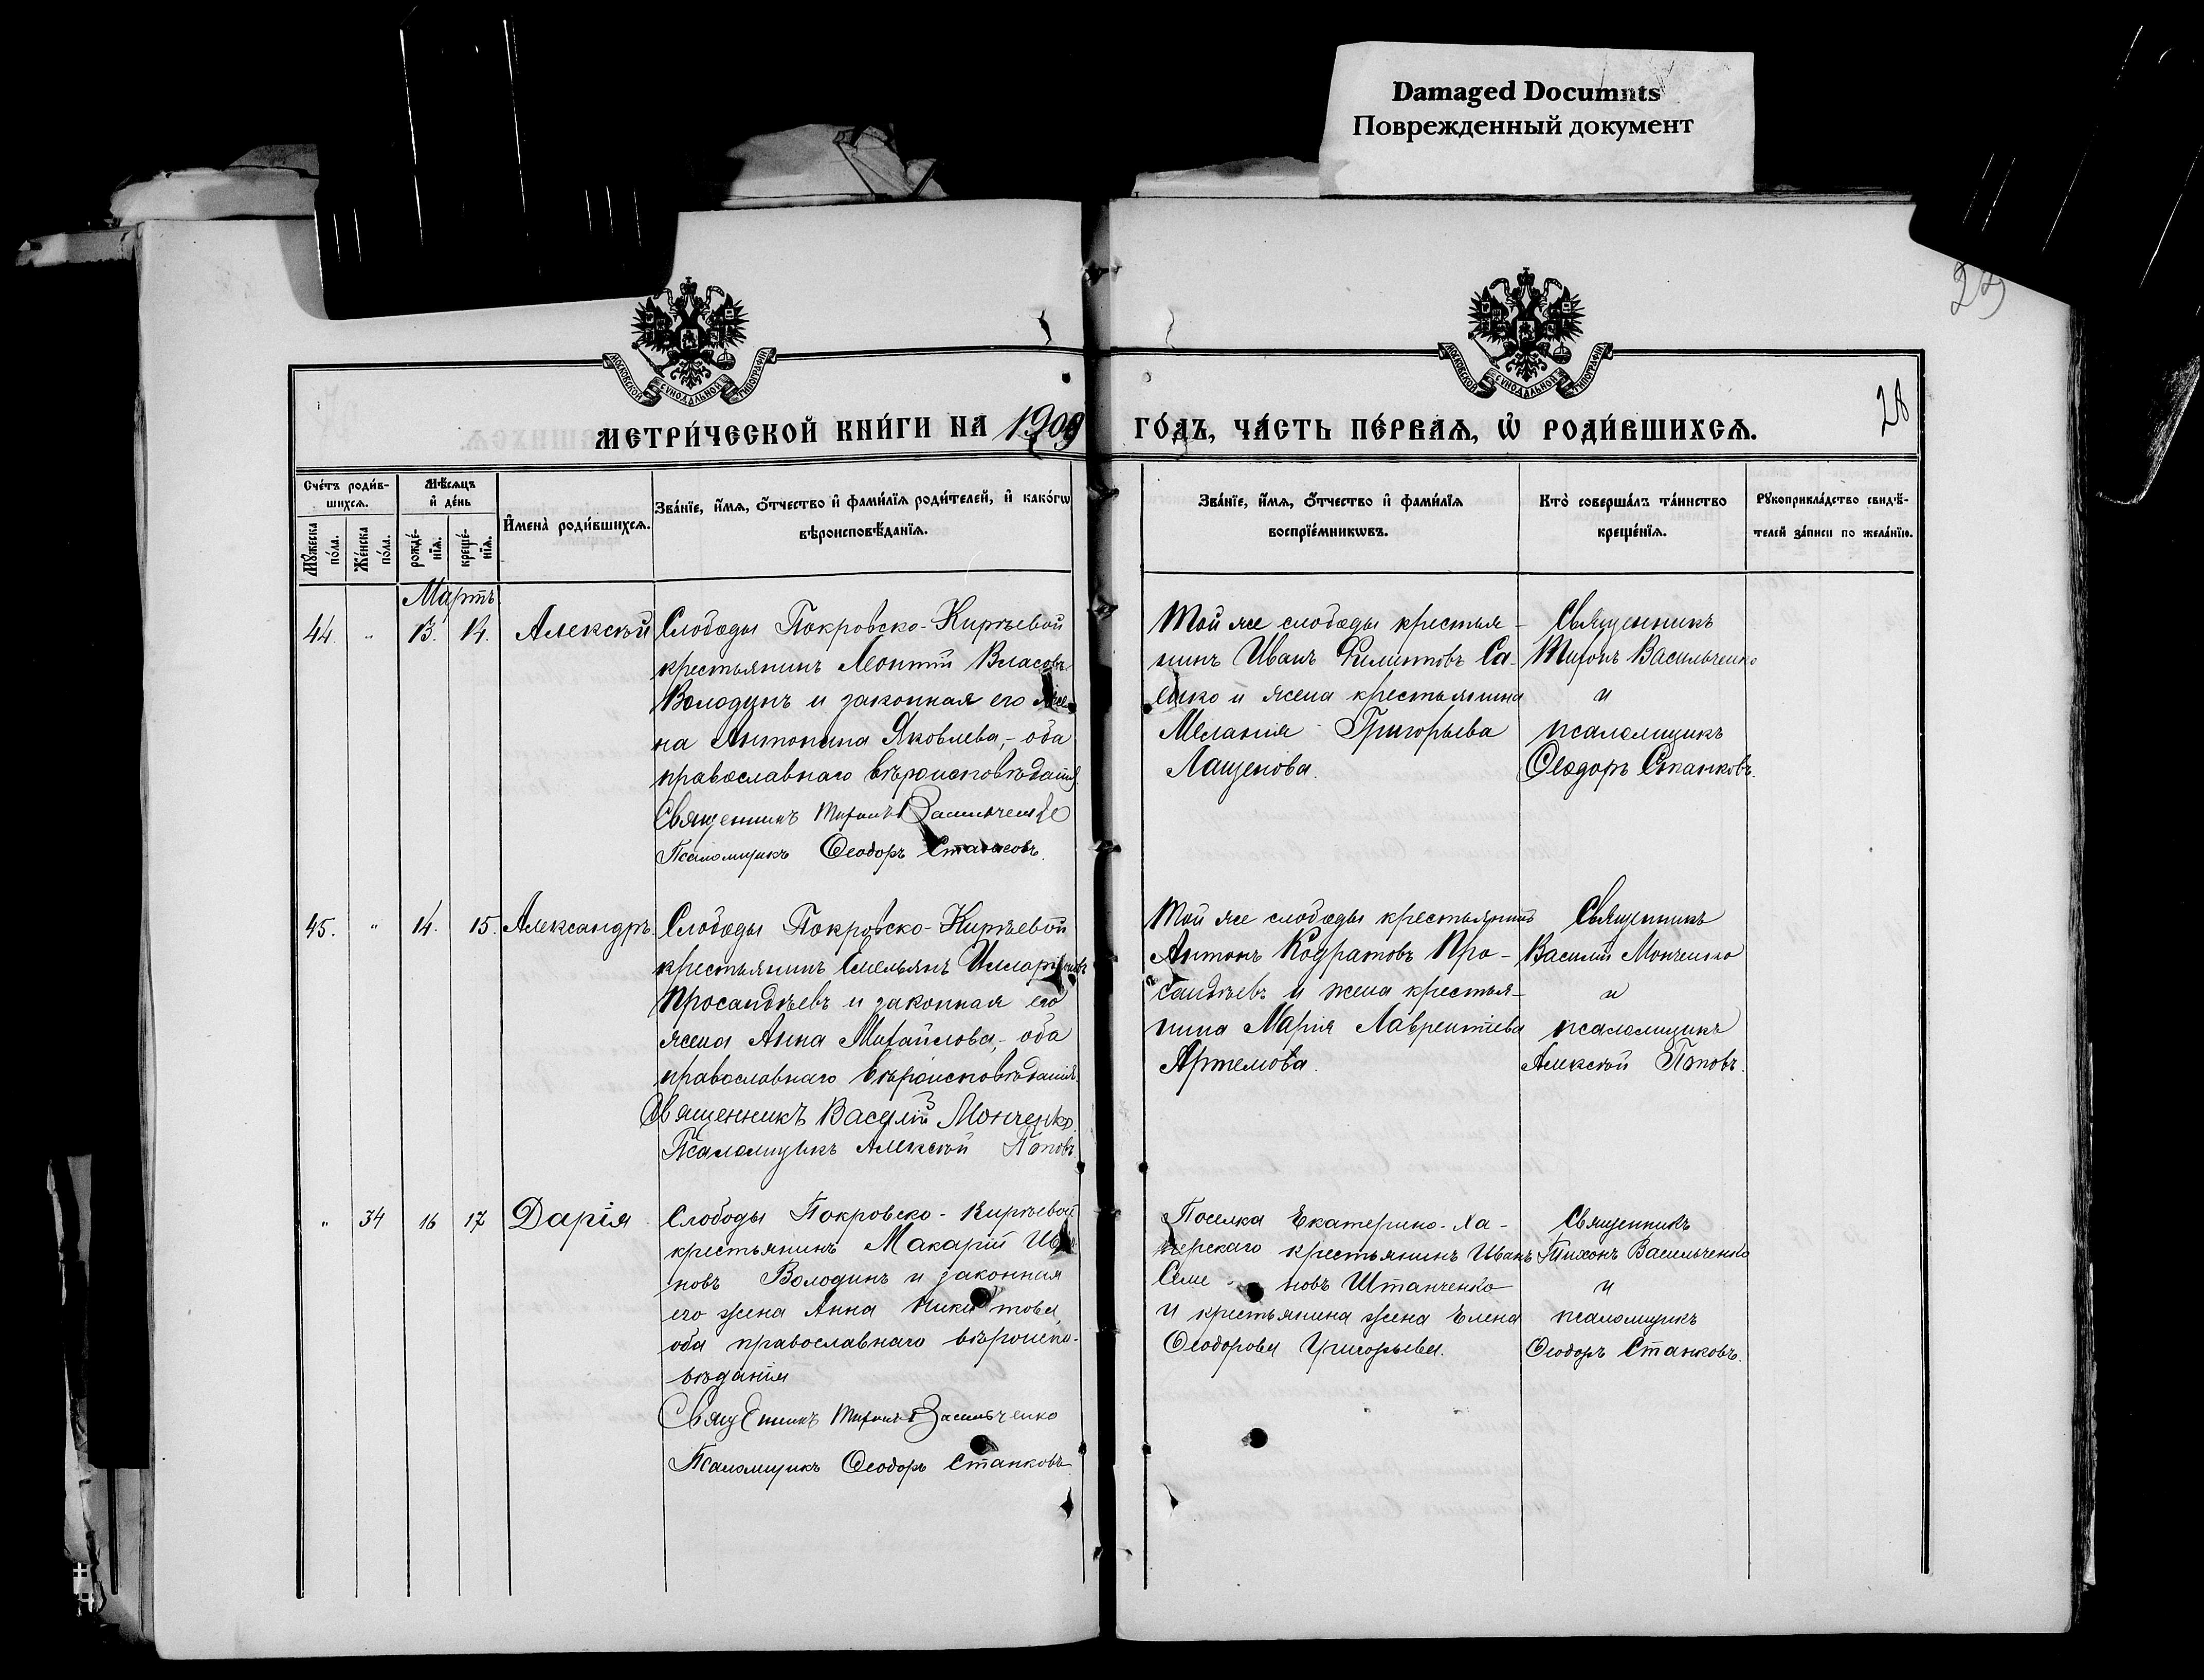 Damaged Documnts
Поврежденный документ
МОСКОВСКОЙ СѴНОДАЛЬНОЙ ТИПОГРАФІИ
МОСКОВСКОЙ СѴНОДАЛЬНОЙ ТИПОГРАФІИ
28
МЕТРИ́ЧЕСКОЙ КНИ́ГИ НА 1909 ГО́ДЪ, ЧА́СТЬ ПЕ́РВАѦ, Ѡ҆ РОДИ́ВШИХСѦ.
Сче́тъ роди́вшихсѧ.
Мꙋ́жеска по́ла.
Же́нска по́ла.
Мѣ́сѧцъ и҆ де́нь
рожде́нїѧ.
креще́нїѧ.
И҆мена̀ роди́вшихсѧ.
Зва́нїе, и҆́мѧ, ѻ҆́тчество и҆ фами́лїѧ роди́телей, и҆ како́гѡ
вѣроисповѣ́данїѧ.
Зва́нїе, и҆́мѧ, ѻ҆́тчество и҆ фами́лїѧ
воспрїе́мникѡвъ.
Кто̀ соверша́лъ та́инство
креще́нїѧ.
Рꙋкоприкла́дство свидѣ́-
телей за́писи по жела́нїю.
Мартъ
44. " 13. 14. Алексѣй
Слободы Покровско-Кирѣевой
крестьянинъ Леонтій Власовъ
Володинъ и законная его же-
на Антонина Яковлева,- оба
православнаго вѣроисповѣданія
Священникъ Тихонъ Васильченко
Псаломщикъ Ѳеодоръ Станковъ.
Той же слободы крестья-
нинъ Иванъ Филиповъ Са-
енко и жена крестьянина
Меланія Григорьева
Лащенова.
Священникъ
Тихонъ Васильченко
и
псаломщикъ
Ѳеодоръ Станковъ.
45. " 14. 15. Александръ.
Слободы Покровско-Кирѣевой
крестьянинъ Емельянъ Илларіоновъ
Просандѣевъ и законная его
жена Анна Михайлова,- оба
православнаго вѣроисповѣданія.
Священникъ Василій Монченко.
Псаломщикъ Алексѣй Поповъ.
Той же слободы крестьянинъ
Антонъ Кодратовъ Про-
сандѣевъ и жена крестья-
нина Марія Лаврентіева
Артемова.
Священникъ
Василій Монченко
и
псаломщикъ
Алексѣй Поповъ.
" 34 16 17 Дарія
Слободы Покровско-Кирѣевой
крестьянинъ Макарій Ива
новъ Володинъ и законная
его жена Анна Никитова,
оба православнаго вѣроиспо-
вѣданія
Священникъ Тихонъ Васильченко
Псаломщикъ Ѳеодоръ Станковъ
Поселка Екатерино-Ха-
перскаго крестьянинъ Иванъ
Семе - новъ Штанченко
и крестьянина жена Елена
Ѳеодорова Григорьева.
Священникъ
Тихонъ Васильченко
и
псаломщикъ
Ѳеодоръ Станковъ.